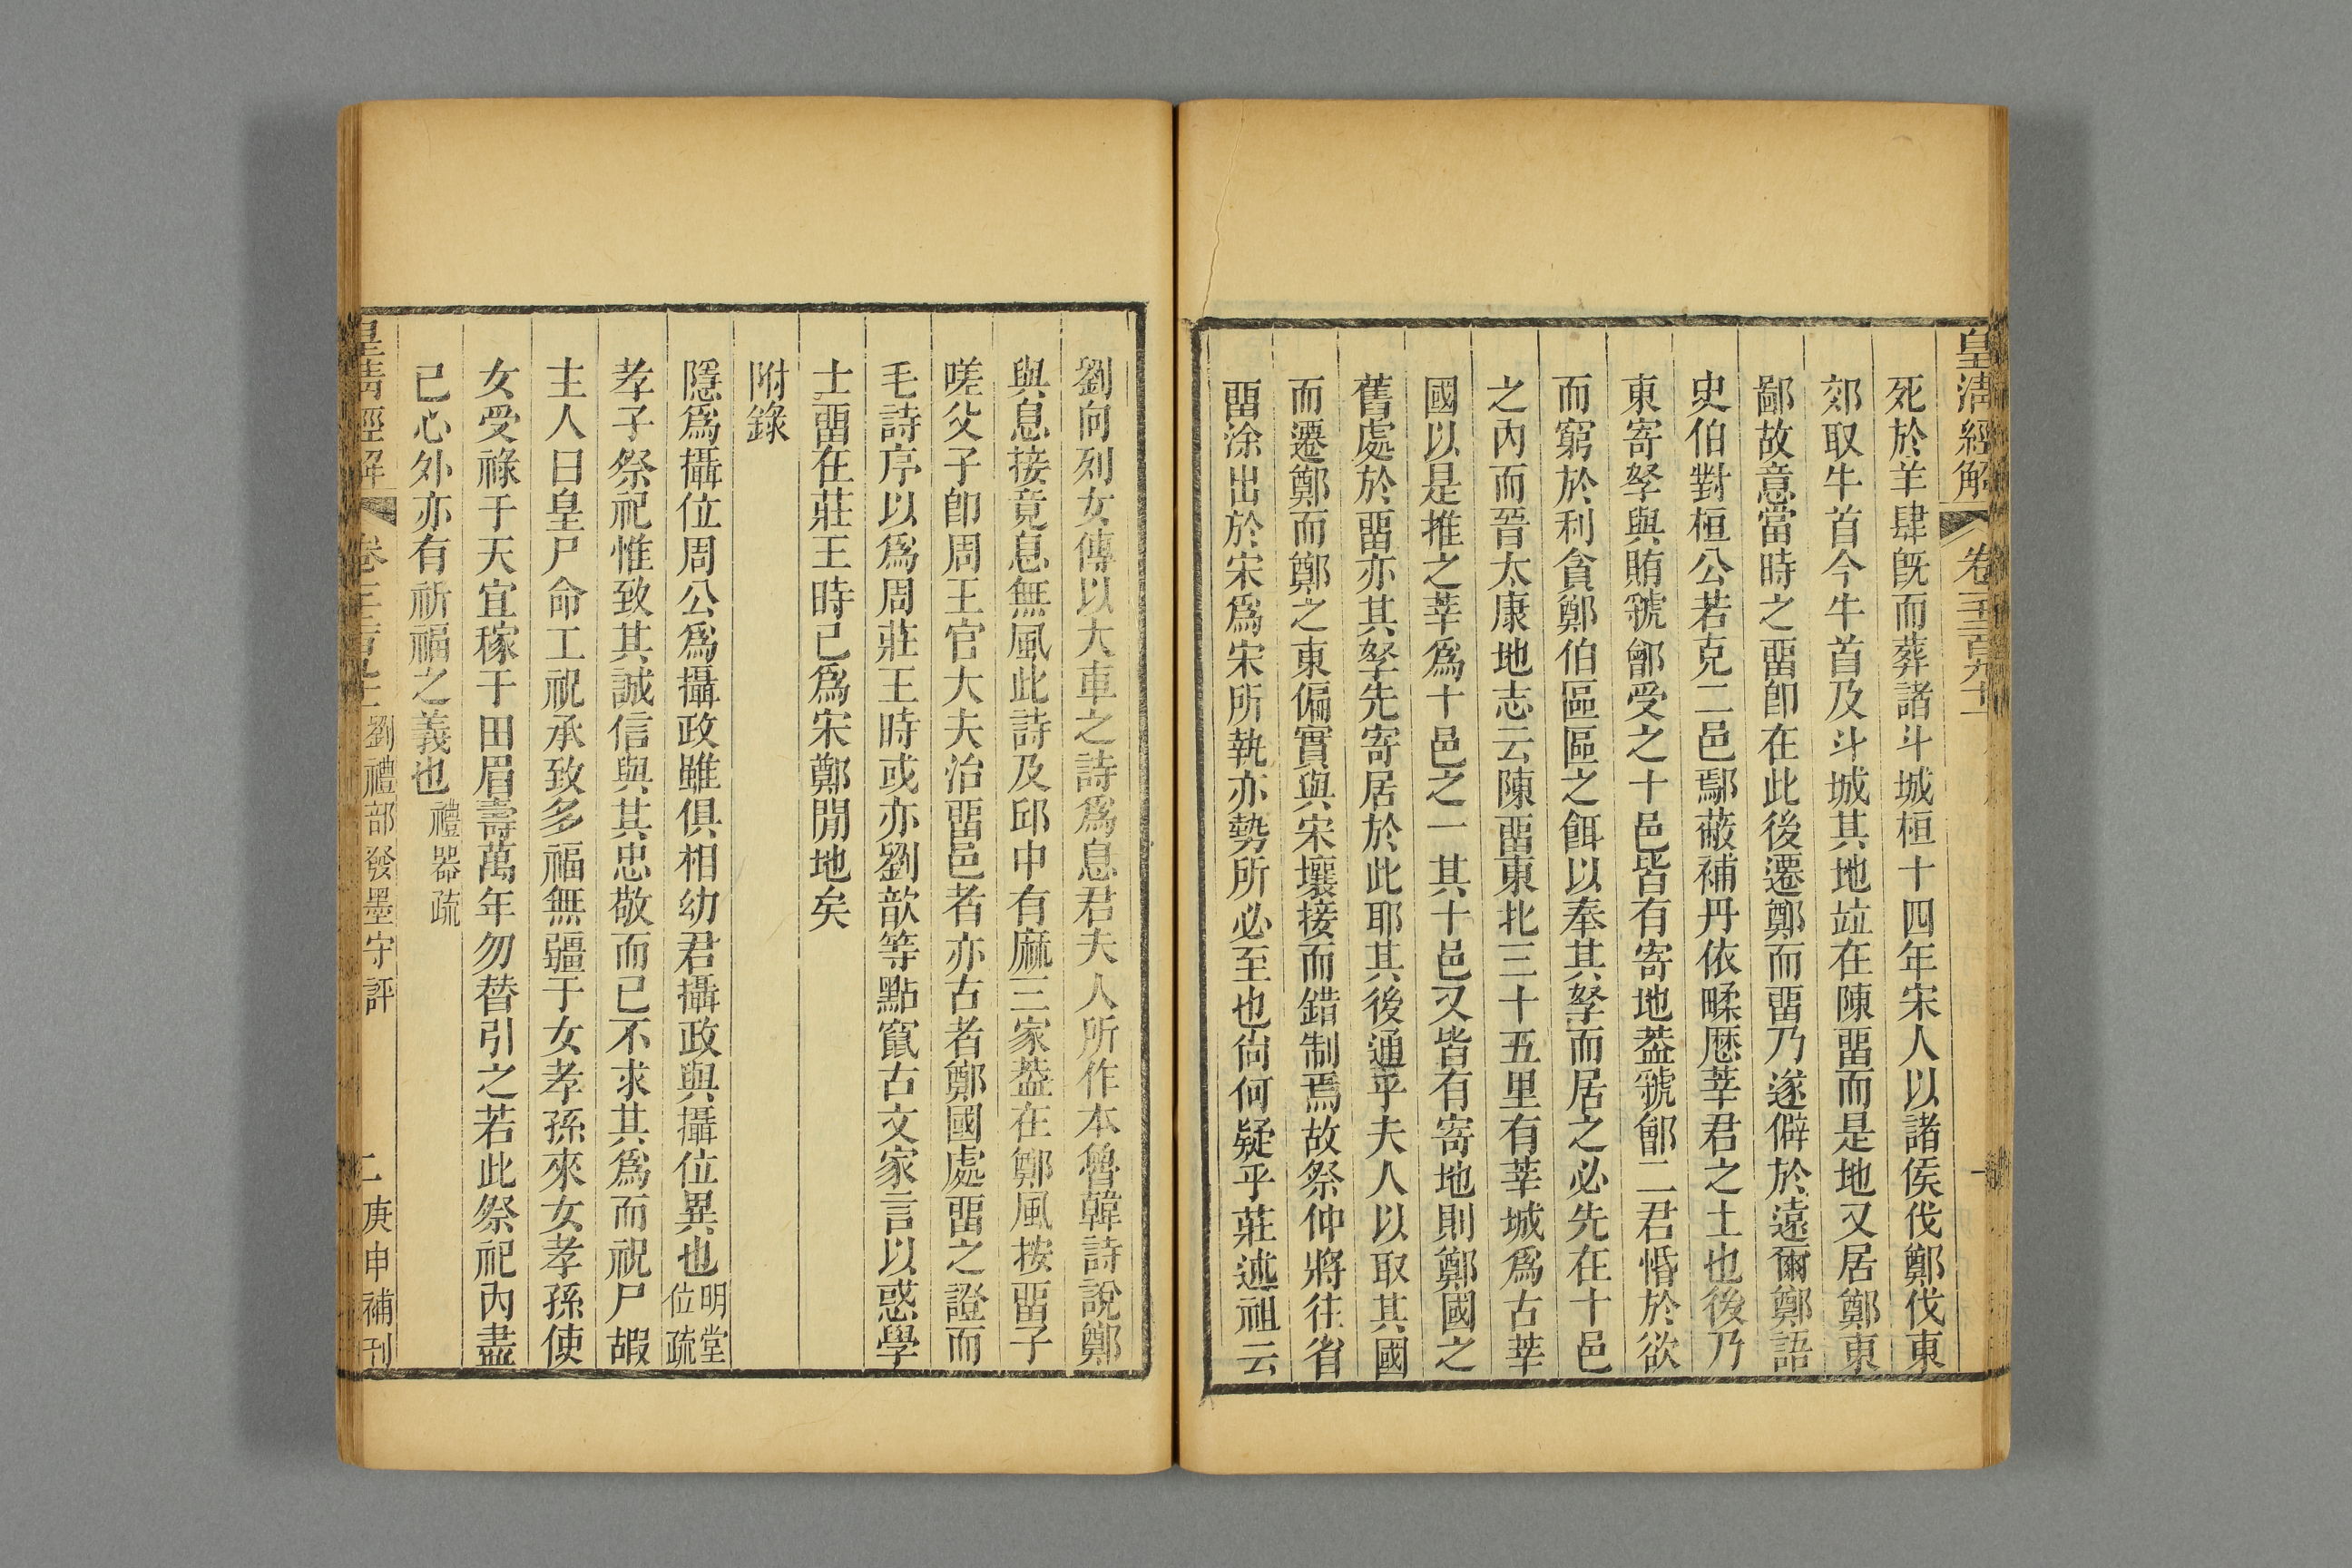 皇清經解
死於羊肆旣而葬諸斗城桓十四年宋人以諸侯伐鄭伐東
郊取牛首今牛首及斗城其地竝在陳畱而是地又居鄭東
鄙故意當時之畱卽在此後遷鄭而畱乃遂僻於遠爾鄭語
史伯對桓公若克二邑鄢蔽補丹依𪑛歷莘君之土也後乃
東寄孥與賄虢鄶受之十邑皆有寄地葢虢鄶二君惛於欲
而窮於利貪鄭伯區區之餌以奉其孥而居之必先在十邑
之內而晉太康地志云陳畱東北三十五里有莘城爲古莘
國以是推之莘爲十邑之一其十邑又皆有寄地則鄭國之
舊處於畱亦其孥先寄居於此耶其後通乎夫人以取其國
而遷鄭而鄭之東偏實與宋壤接而錯制焉故祭仲將往省
畱涂出於宋爲宋所執亦勢所必至也尙何疑乎莊述祖云
劉向列女傳以大車之詩爲息君夫人所作本魯韓詩說鄭
與息接竟息無風此詩及邱中有麻三家葢在鄭風按畱子
嗟父子卽周王官大夫治畱邑者亦古者鄭國處畱之證而
毛詩序以爲周莊王時或亦劉歆等點竄古文家言以惑學
士畱在莊王時已爲宋鄭閒地矣
附錄
隱爲攝位周公爲攝政雖俱相幼君攝政與攝位異也明堂位疏
孝子祭祀惟致其誠信與其忠敬而已不求其爲而祝尸嘏
主人曰皇尸命工祝承致多福無疆于女孝孫來女孝孫使
女受祿于天宜稼于田眉壽萬年勿替引之若此祭祀內盡
己心外亦有祈福之義也禮器疏
皇清經解 劉禮部發墨守評 二 庚申補刊